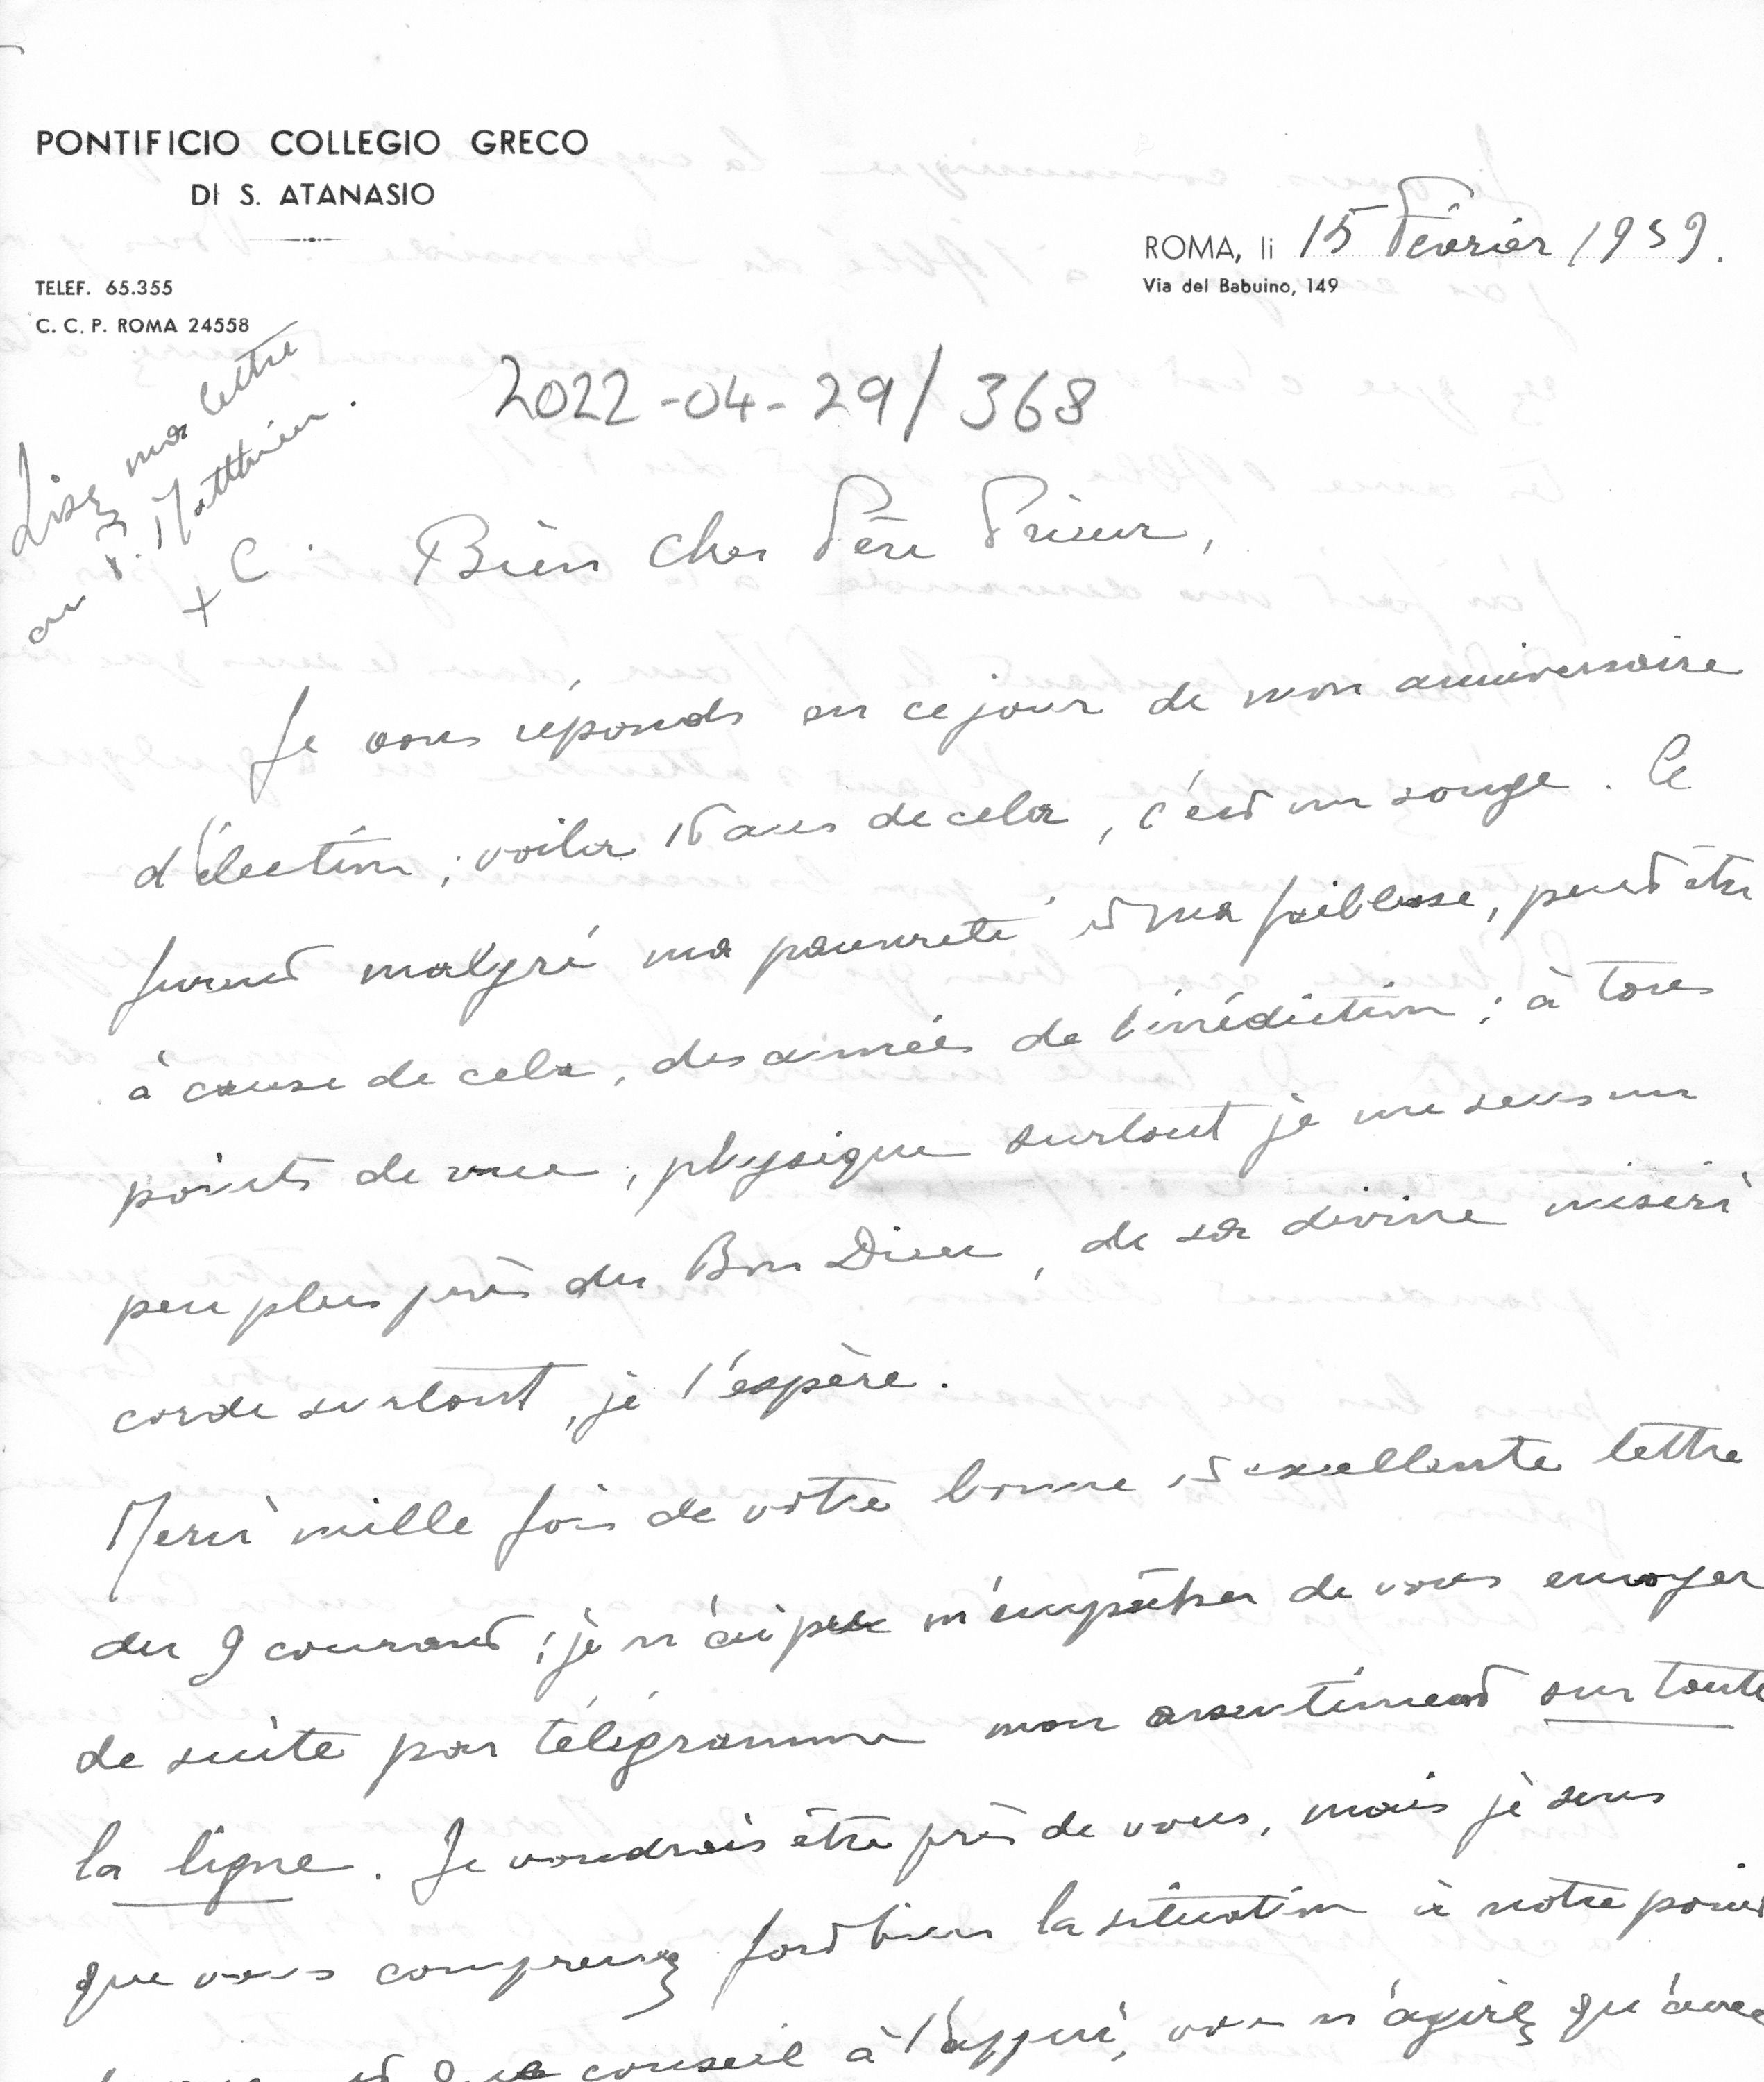 PONTIFICIO COLLEGIO GRECO
DI S. ATANASIO
TELEF. 65.355
C. C. P. ROMA 24558
ROMA, li 15 Février 1959.
Via del Babuino, 149
Lisez ma lettre
au P. Matthieu.
2022-04-29/368
+ C. Bien cher Père Prieur,
Je vous réponds en ce jour de mon anniversaire
d'élection ; voila 16 ans de cela, c'est un songe. Ce
furent malgré ma pauvreté et ma faiblesse, peut être
à cause de cela, des années de bénédiction ; à tous
points de vue, physique surtout je me sens un
peu plus près du Bon Dieu, de sa divine miséri
corde surtout, je l'espère.
Merci mille fois de votre bonne et excellente lettre
du 9 courant ; je n'ai pu m'empêcher de vous envoyer
de suite par télégramme mon assentiment sur toute
la ligne. Je voudrais être près de vous, mais je sens
que vous comprenez fort bien la situation à notre point
et que conseil à l'appui, vous n'agirez qu'avec